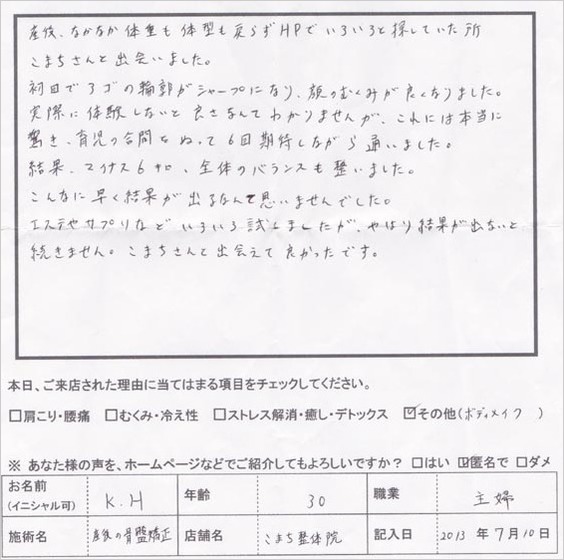 産後、なかなか体重も体型も戻らずHPでいろいろと探していた所
こまちさんと出会いました。
初回でアゴの輪郭がシャープになり、顔のむくみが良くなりました。
実際に体験しないと良さなんてわかりませんが、これには本当に
驚き、育児の合間をぬって6回期待しながら通いました。
結果、マイナス6キロ、全体のバランスも整いました。
こんなに早く結果が出るなんて思いませんでした。
エステやサプリなどいろいろ試しましたが、やはり結果が出ないと
続きません。こまちさんと出会えて良かったです。
本日、ご来店された理由に当てはまる項目をチェックしてください。
□肩こり・腰痛 □むくみ・冷え性 □ストレス解消・癒し・デトックス ☑その他(ボディメイク )
※ あなた様の声を、ホームページなどでご紹介してもよろしいですか? □はい ☑匿名で □ダメ
お名前 (イニシャル可) K.H 年齢 30 職業 主婦
施術名 産後の骨盤矯正 店舗名 こまち整体院 記入日 2013 年 7月10日